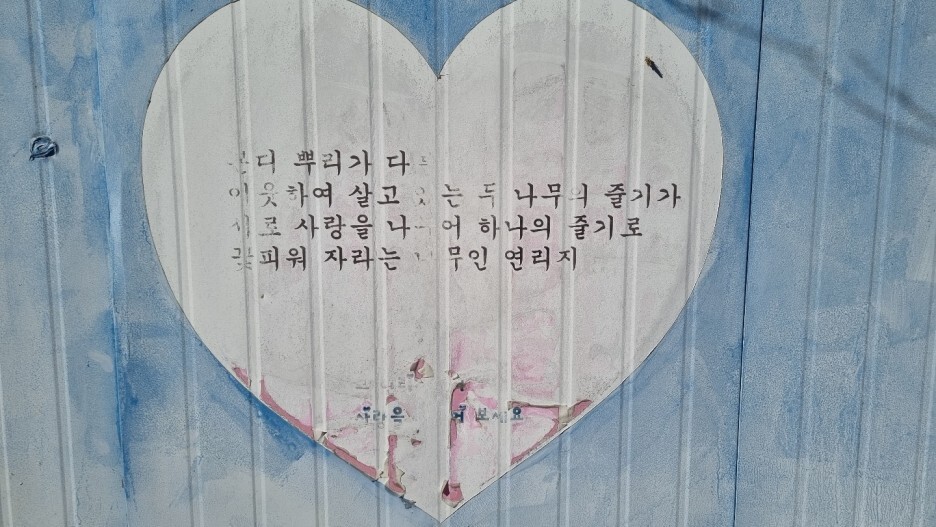 본디 뿌리가 다른
이웃하여 살고 있는 두 나무의 줄기가
서로 사랑을 나누어 하나의 줄기로
꽃피워 자라는 나무인 연리지
사랑을 보세요